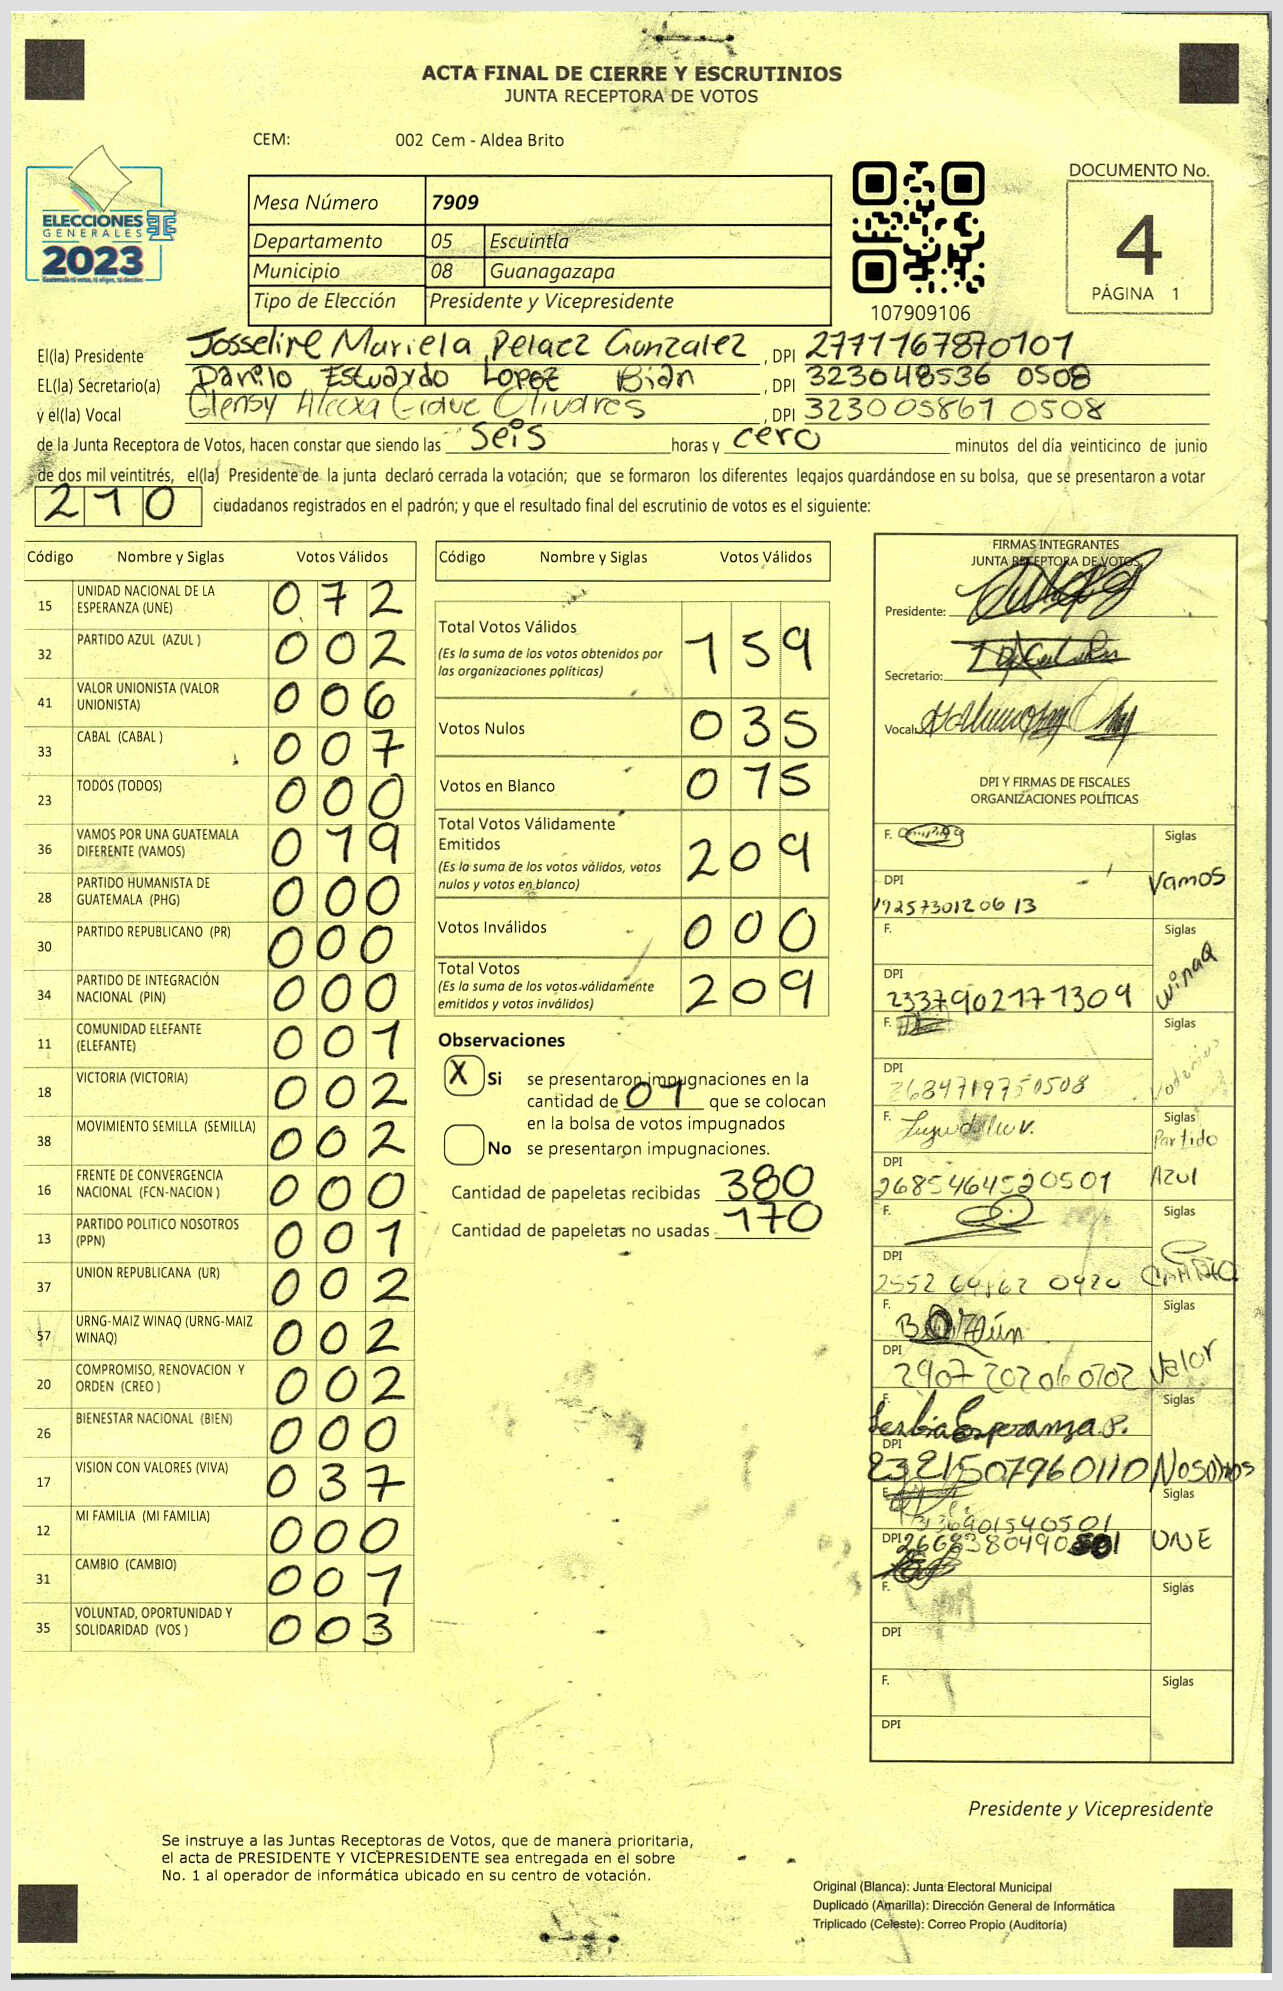 ACTA FINAL DE CIERRE Y ESCRUTINIOS
JUNTA RECEPTORA DE VOTOS
CEM: 002 Cem - Aldea Brito
ELECCIONES
GENERALES
2023
Mesa Número 7909
Departamento 05 Escuintla
Municipio 08 Guanagazapa
Tipo de Elección Presidente y Vicepresidente
107909106
DOCUMENTO No.
4
PÁGINA 1
El(la) Presidente Josseline Mariela Pelaez Gonzalez, DPI 2771167870101
EL(la) Secretario(a) Danilo Estuardo Lopez Bian, DPI 323048536 0508
y el(la) Vocal Glensy Olivares, DPI 323005861 0508
de la Junta Receptora de Votos, hacen constar que siendo las seis horas y cero minutos del día veinticinco de junio
de dos mil veintitrés, el(la) Presidente de la junta declaró cerrada la votación; que se formaron los diferentes legajos guardándose en su bolsa, que se presentaron a votar
210 ciudadanos registrados en el padrón; y que el resultado final del escrutinio de votos es el siguiente:
Código Nombre y Siglas Votos Válidos
15 UNIDAD NACIONAL DE LA ESPERANZA (UNE) 072
32 PARTIDO AZUL (AZUL ) 002
41 VALOR UNIONISTA (VALOR UNIONISTA) 006
33 CABAL (CABAL ) 007
23 TODOS (TODOS) 000
36 VAMOS POR UNA GUATEMALA DIFERENTE (VAMOS) 019
28 PARTIDO HUMANISTA DE GUATEMALA (PHG) 000
30 PARTIDO REPUBLICANO (PR) 000
34 PARTIDO DE INTEGRACIÓN NACIONAL (PIN) 000
11 COMUNIDAD ELEFANTE (ELEFANTE) 001
18 VICTORIA (VICTORIA) 002
38 MOVIMIENTO SEMILLA (SEMILLA) 002
16 FRENTE DE CONVERGENCIA NACIONAL (FCN-NACION ) 000
13 PARTIDO POLITICO NOSOTROS (PPN) 001
37 UNION REPUBLICANA (UR) 002
57 URNG-MAIZ WINAQ (URNG-MAIZ WINAQ) 002
20 COMPROMISO, RENOVACION Y ORDEN (CREO ) 002
26 BIENESTAR NACIONAL (BIEN) 000
17 VISION CON VALORES (VIVA) 037
12 MI FAMILIA (MI FAMILIA) 000
31 CAMBIO (CAMBIO) 001
35 VOLUNTAD, OPORTUNIDAD Y SOLIDARIDAD (VOS ) 003
Código Nombre y Siglas Votos Válidos
Total Votos Válidos 159
(Es la suma de los votos obtenidos por
las organizaciones políticas)
Votos Nulos 035
Votos en Blanco 015
Total Votos Válidamente
Emitidos 209
(Es la suma de los votos válidos, votos
nulos y votos en blanco)
Votos Inválidos 000
Total Votos 209
(Es la suma de los votos válidamente
emitidos y votos inválidos)
Observaciones
X Si se presentaron impugnaciones en la
cantidad de 01 que se colocan
en la bolsa de votos impugnados
No se presentaron impugnaciones.
Cantidad de papeletas recibidas 380
Cantidad de papeletas no usadas 170
FIRMAS INTEGRANTES
JUNTA RECEPTORA DE VOTOS
Presidente:
Secretario:
Vocal:
DPI Y FIRMAS DE FISCALES
ORGANIZACIONES POLÍTICAS
F. Siglas
DPI Vamos
1925730120613
F. Siglas
DPI winaq
2337902171309
F. Siglas
DPI
2684719750508
F. Siglas
Partido
DPI Azul
2685464520501
F. Siglas
DPI
F. Siglas
DPI Valor
2907 202060702
F. Siglas
Esperanza P.
DPI
2321507960110 Nosotros
F. Siglas
DPI UNE
F. Siglas
DPI
F. Siglas
DPI
Presidente y Vicepresidente
Se instruye a las Juntas Receptoras de Votos, que de manera prioritaria,
el acta de PRESIDENTE Y VICEPRESIDENTE sea entregada en el sobre
No. 1 al operador de informática ubicado en su centro de votación.
Original (Blanca): Junta Electoral Municipal
Duplicado (Amarilla): Dirección General de Informática
Triplicado (Celeste): Correo Propio (Auditoría)